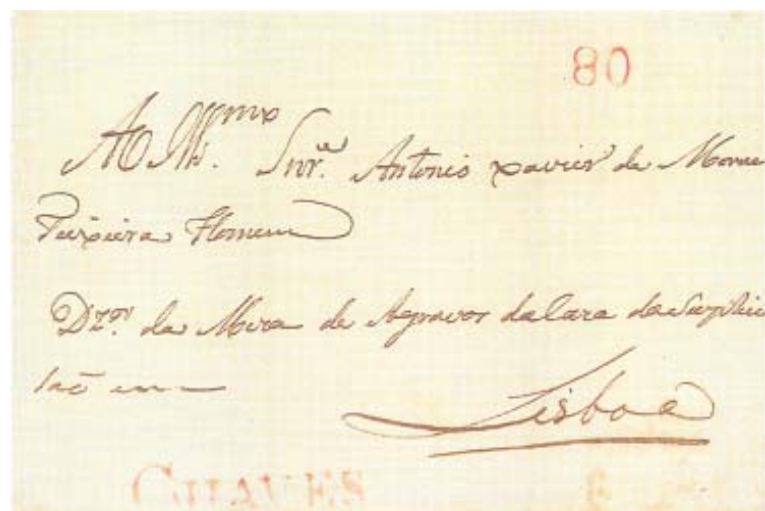 80
Ao Illmo Snr. Antonio Xavier de Moraes
Teixeira Homem
Dzor. da Meza de Agravos da Caza da Suplica
ção em
Lisboa
CHAVES